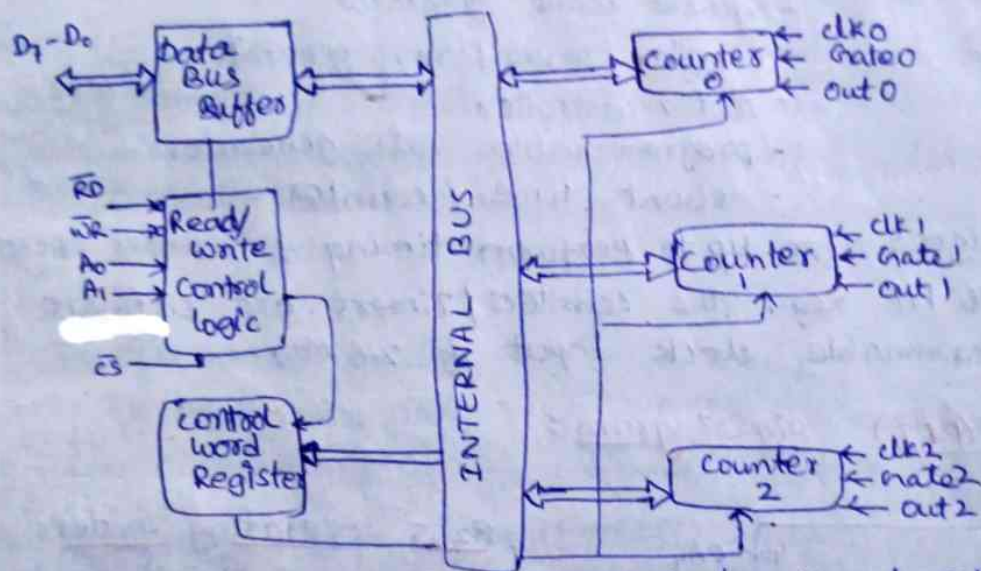 D7-D0
Data
BUS
Buffer
R̅D̅
W̅R̅
A0
A1
C̅S̅
Read/
write
control
logic
control
word
Register
INTERNAL BUS
counter
0
clk0
Gate0
out0
counter
1
clk1
Gate1
out1
counter
2
clk2
Gate2
out2